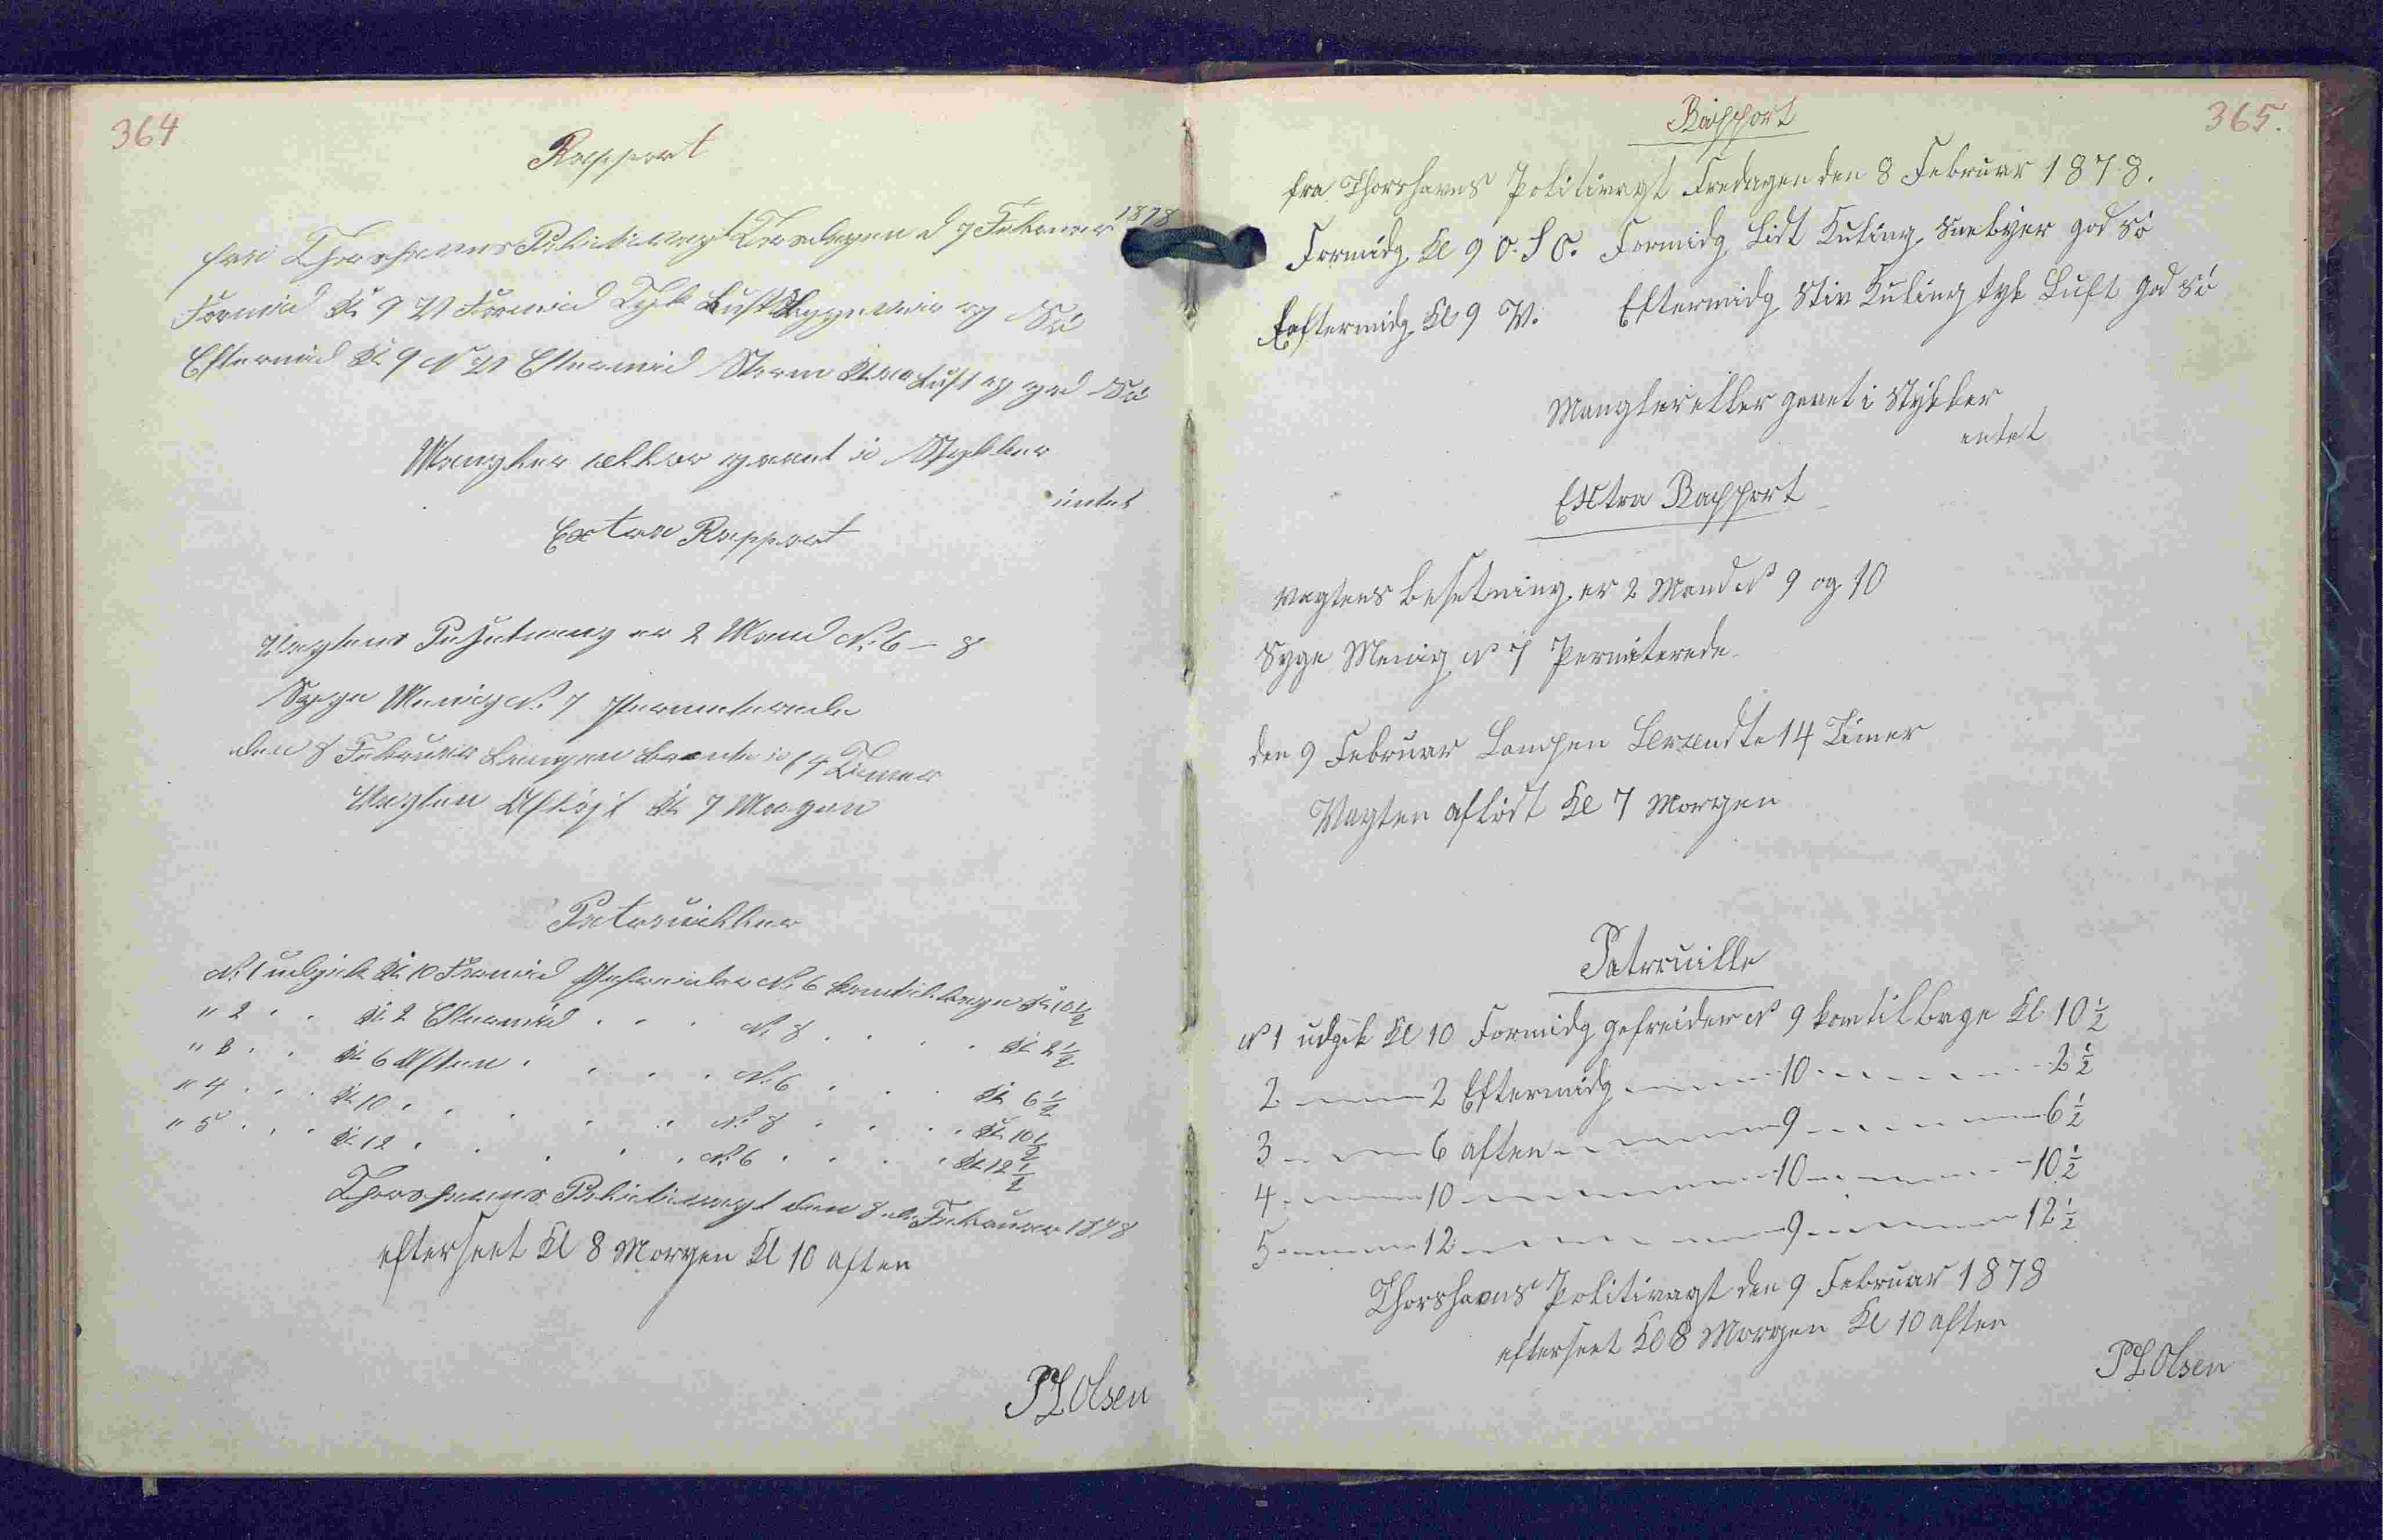 364
Rapport
fra Thorshavns Politivagt Torsdagen d 7 Februar 1878
Formid Kl 9 V Formid Tyk Luft Bygeveir og Sø
Eftermid Kl 9 N V Eftermid Storm Klar Luft og god Sø
Mangler eller gaaet i Stykker
intet
Extra Rapport
Vagtens Besetning er 2 Mand No 6 - 8
Syge Menig No 7 Permiterede
den 8 Februar Lampen brente i 14 Timer
Vagten Afløst Kl 7 Morgen
Patrouiller
No 1 udgik Kl 10 Formid Gefreider No 6 kom tilbage Kl 10½
" 2 . . Kl 2 Eftermid . . . No 8 . . . . Kl 2½
" 3 . . Kl 6 Aften . . . . No 6 . . . Kl 6½
" 4 . . . Kl 10 . . . . . No 8 . . . . Kl 10½
" 5 . . . Kl 12 . . . . . No 6 . . . . Kl 12½
Thorshavns Politivagt den 8de Februar 1878
efterseet Kl 8 Morgen Kl 10 Aften
PL Olsen
365.
Rapport
fra Thorshavns Politivagt Fredagen den 8 Februar 1878.
Formidg Kl 9 O.S.O. Formidg Lidt Kuling Snebyer god Sø
Eeftermidg Kl 9 V. Eftermidg Stiv Kuling tyk Luft god Sø
Mangler eller gaaet i Stykker
entet
Extra Rapport
Vagtens besetning er 2 Mand No 9 og 10
Syge Menig No 7 Permiterede
den 9 Februar Lampen brændte 14 Timer
Vagten afløst Kl 7 Morgen
Patrouille
No 1 udgik Kl 10 Formidg gefreider No 9 kom tilbage Kl 10½
2 - - - 2 Eftermidg - - - 10 - - - 2½
3 - - - 6 aften - - - 9 - - - 6½
4 - - - 10 - - - 10 - - - 10½
5 - - - 12 - - - 9 - - - 12½
Thorshavns Politivagt den 9 Februar 1878
efterseet Kl 8 Morgen Kl 10 aften
PL Olsen